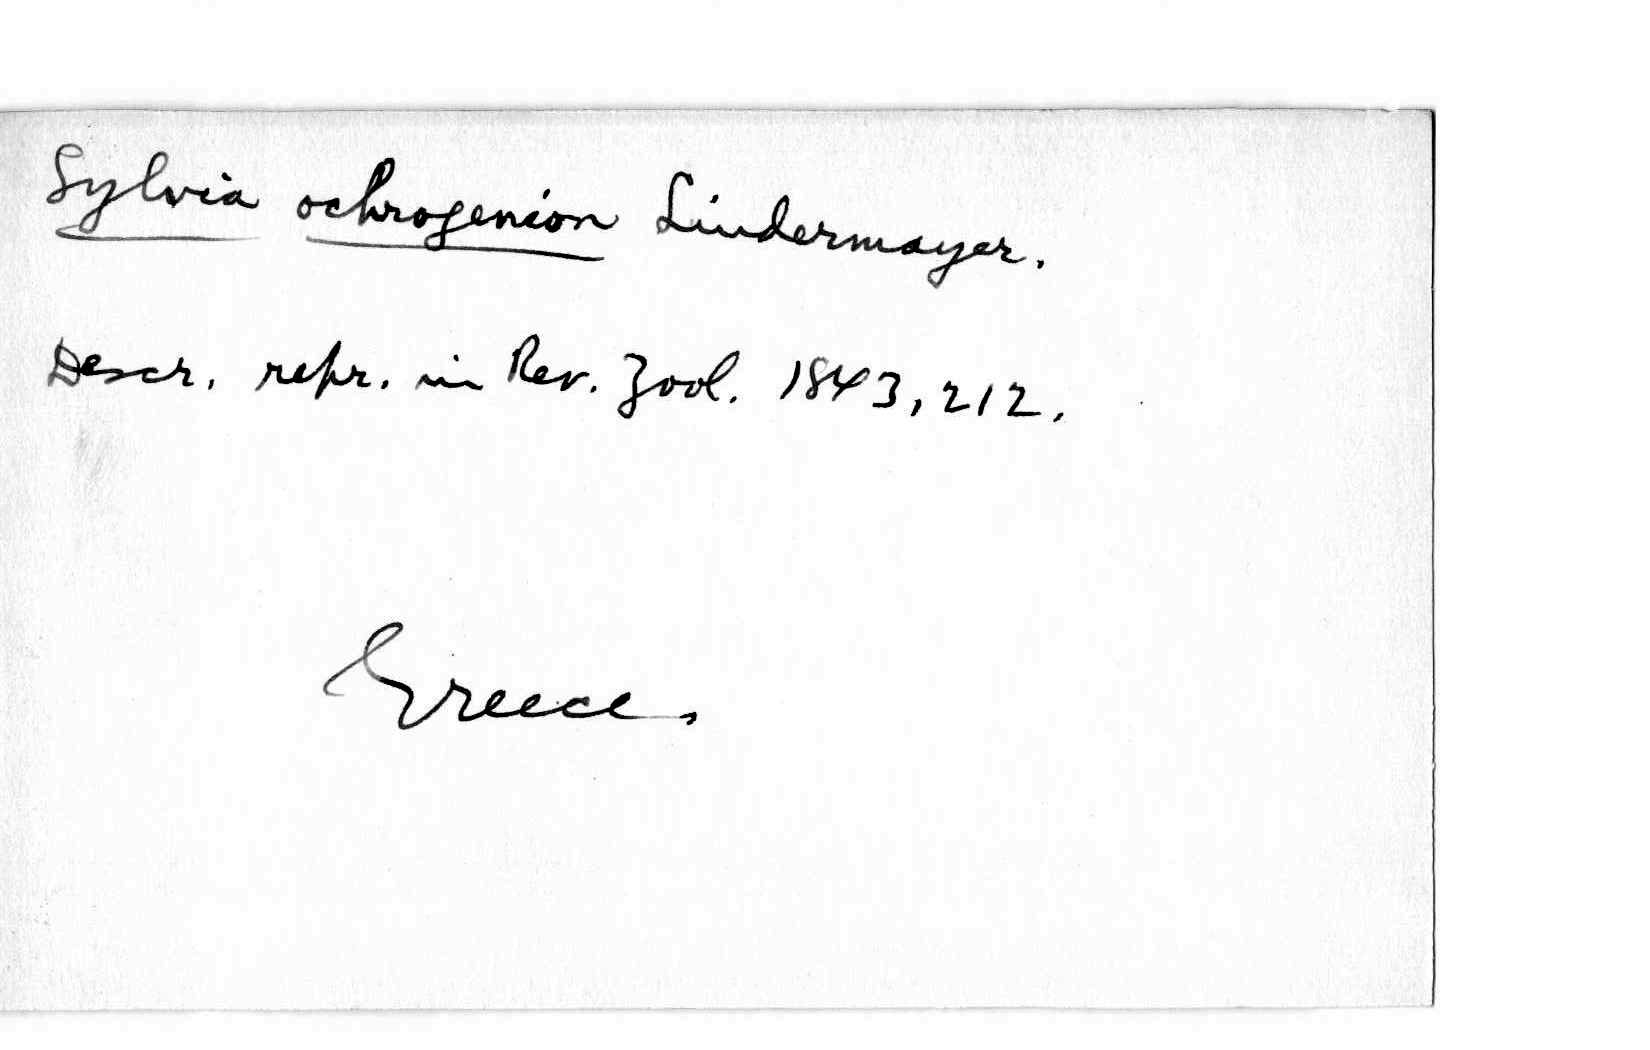 Sylvia ochrogenion Lindermayer.
Descr. repr. in Rev. Zool. 1843, 212.
Greece.